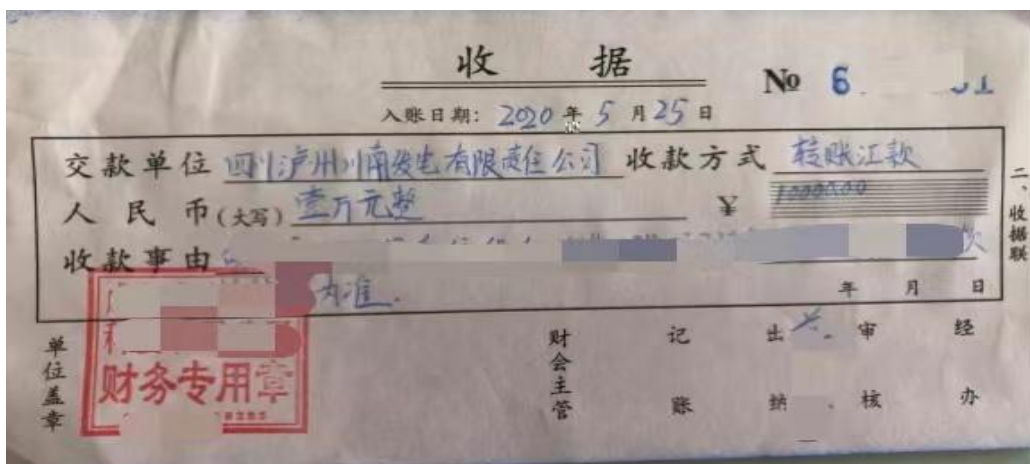 收 据
No 6 01
入账日期: 2020 年 5 月 25 日
交款单位 四川泸州川南发电有限责任公司 收款方式 转账汇款
人民币(大写) 壹万元整 ¥ 1000000
收款事由 款
为准.
年 月 日
二、收据联
单位盖章
财务专用章
财会主管
记账
出纳
审核
经办